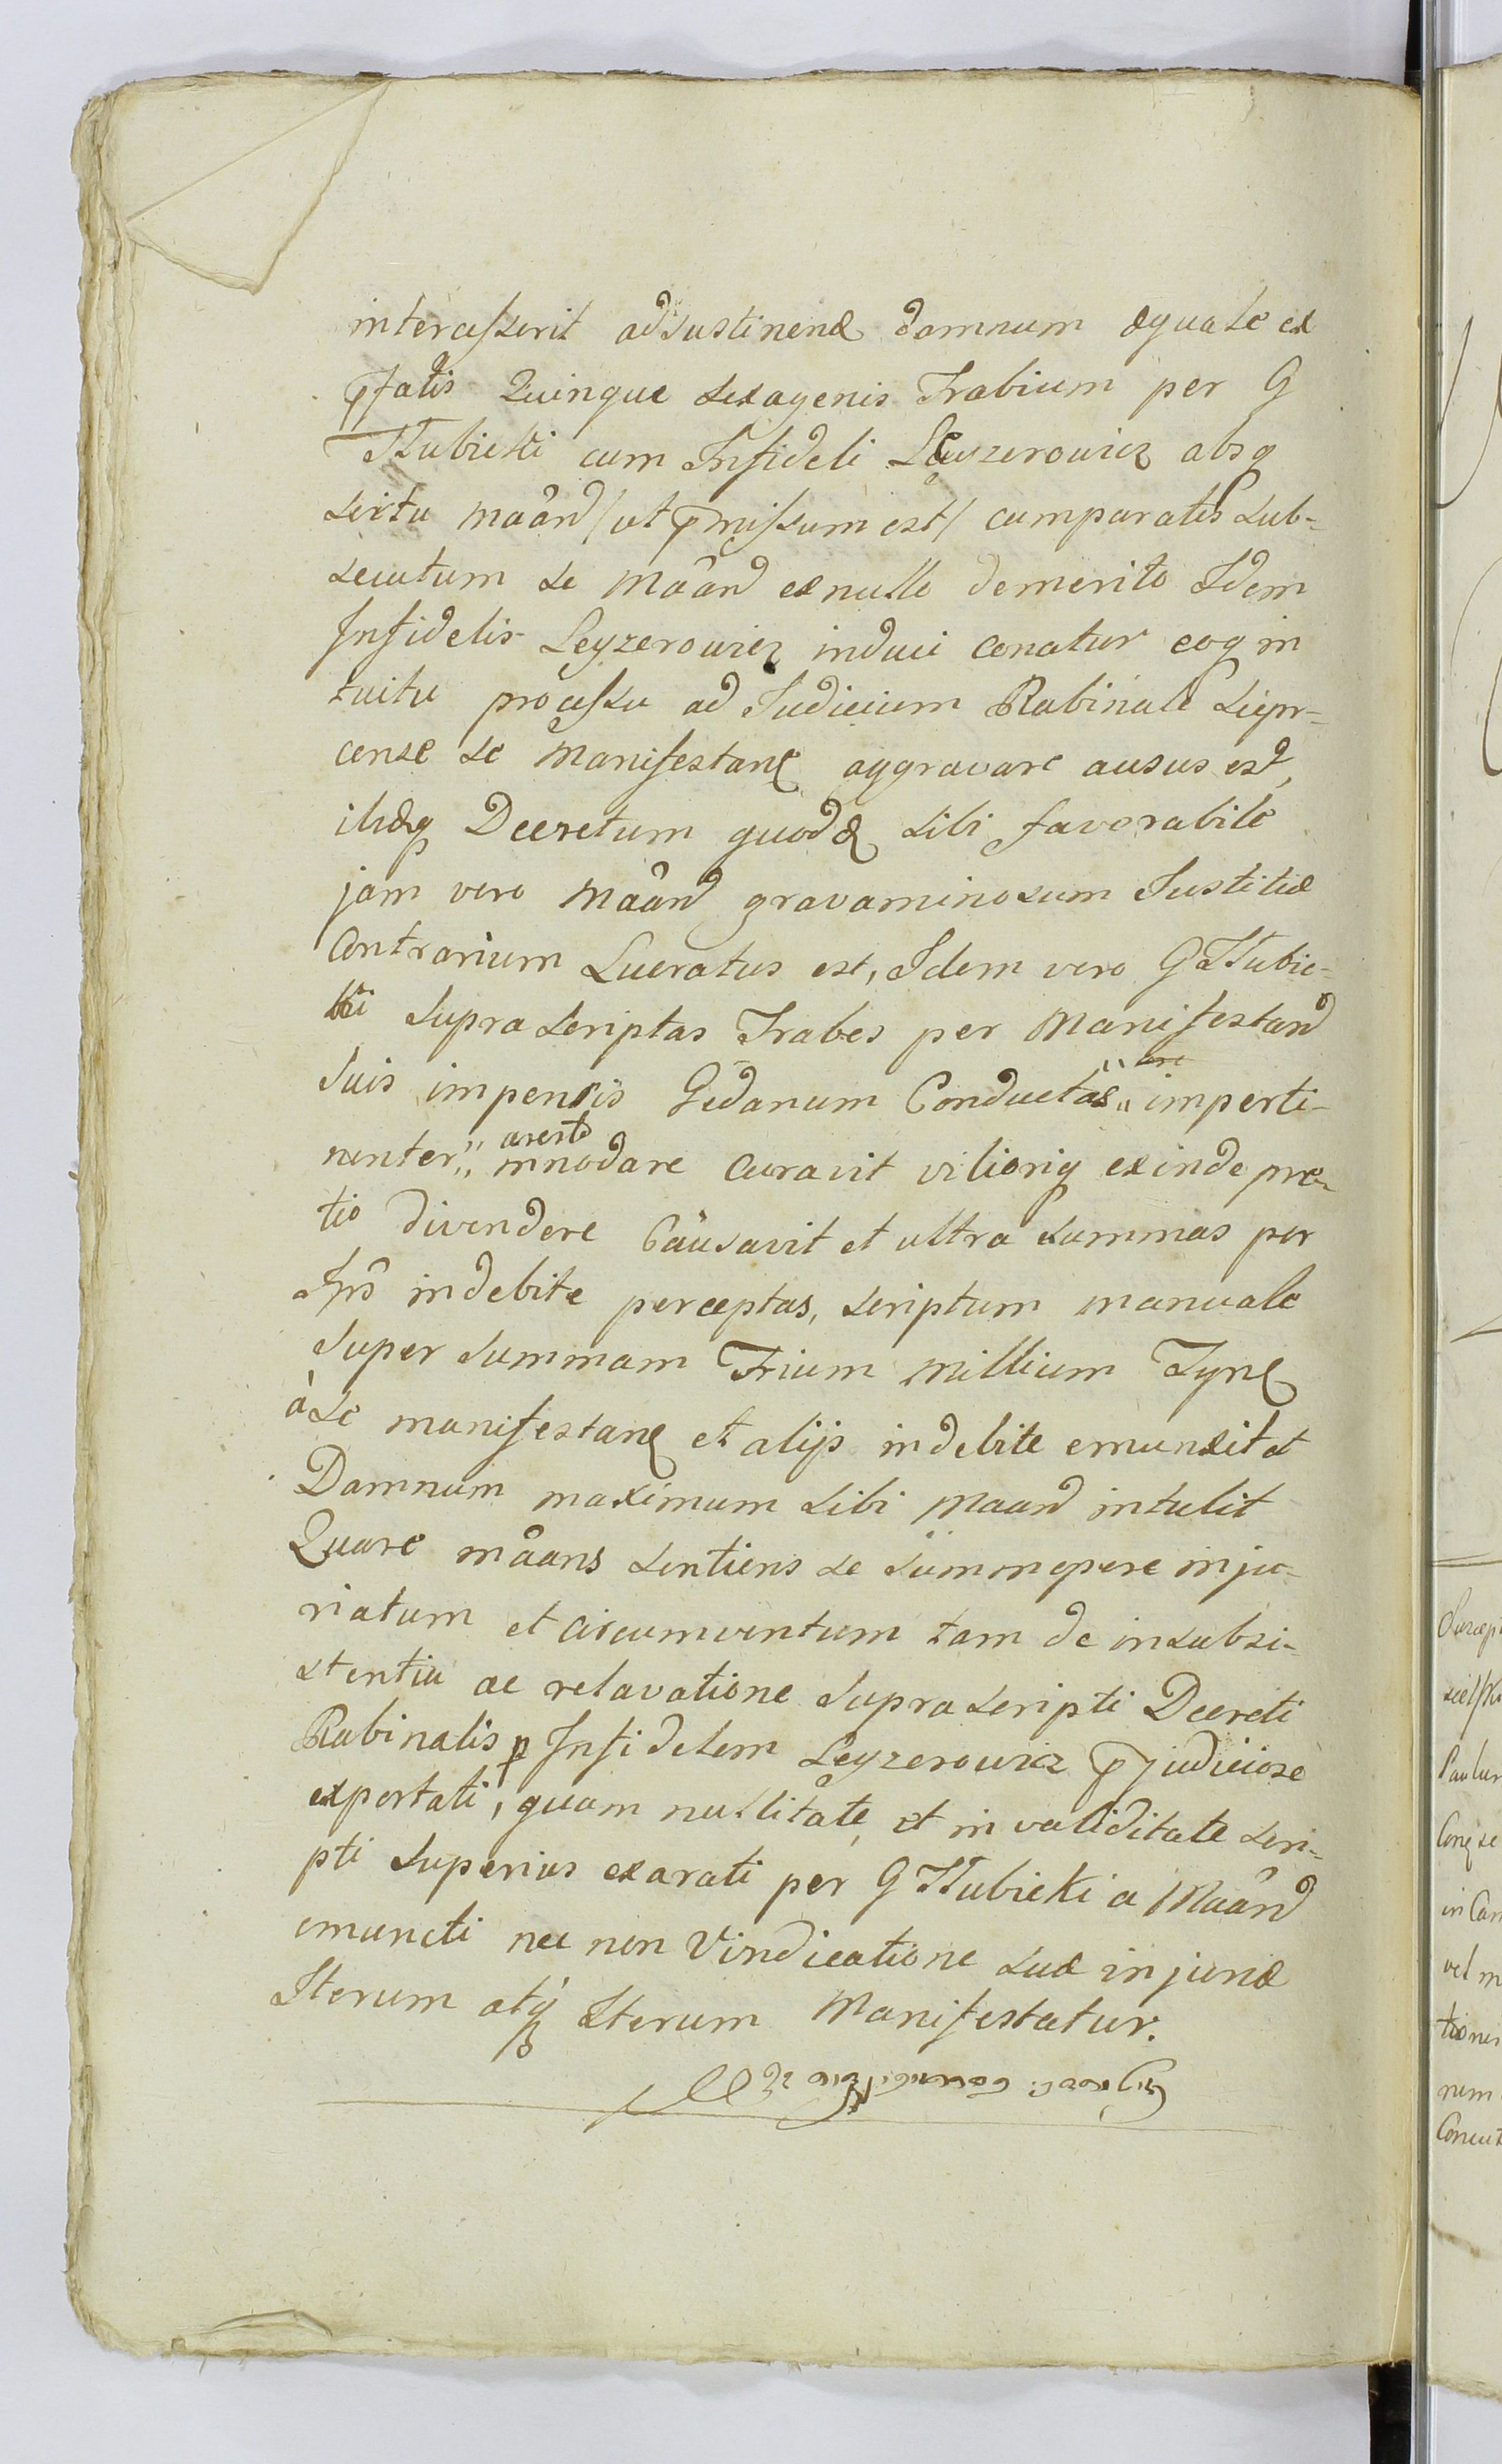 intercesserit ad sustinend damnum æquale ex
pfatis Quinque sexagenis Trabium per G
Kubicki cum Infideli Leyzerowicz absq
scitu mãand /ut pmissum est/ comparatis sub-
secutum se Mãand ex nullo demerito Idem
Infidelis Leyzerowicz induci conatur eoq in
tuitu processu ad Judicium Rabinale
cense se Manifestanť aggravare ausus est,
ibidq Decretum quodd sibi favorabile
jam vero Mãand gravaminosum Justitiæ
Contrarium Lucratus est, Idem vero G Kubic-
ki supra scriptas Trabes per Manifestand
suis impensis Gedanum Conductas „ imperti-
nenter „ aresto innodare curavit vilioriq exinde pre-
tio divendere Causavit et ultra summas per
Ipm indebite perceptas, scriptum manuale
super summam Trium Millium Tynf
à se manifestanť et alijs indebite emunxit et
Damnum maximum sibi Maand intulit
Quare mãans sentiens se summopere inju-
riatum et circumventum tam de insubsi-
stentia ac relavatione supra scripti Decreti
Rabinalis p Infidelem Leyzerowicz pjudiciose
exportati, quam nullitate, et invaliditate scri-
pti superius exarati per G Kubicki a Mãand
emuncti nec non Vindicatione suæ injuriæ
Iterum atq Iterum Manifestatur.
Conc se
in Can
vel m
tiones
num